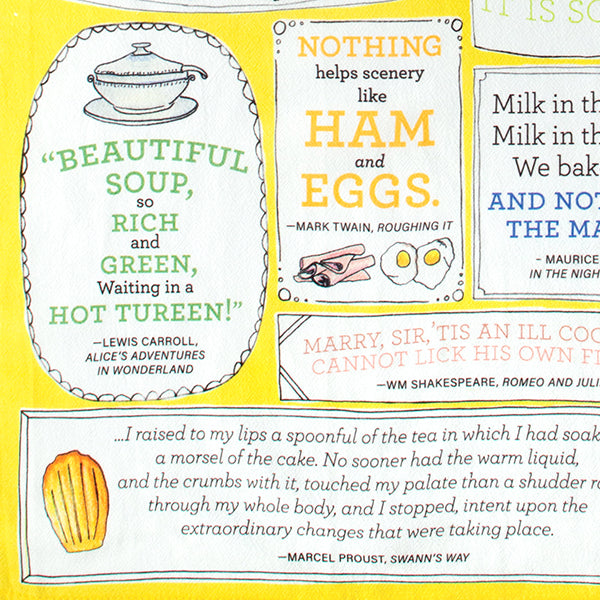 IT IS SO
"BEAUTIFUL
SOUP,
so
RICH
and
GREEN,
Waiting in a
HOT TUREEN!"
—LEWIS CARROLL,
ALICE'S ADVENTURES
IN WONDERLAND
NOTHING
helps scenery
like
HAM
and
EGGS.
—MARK TWAIN, ROUGHING IT
Milk in th
Milk in th
We bak
AND NOT
THE MA
- MAURICE
IN THE NIGH
MARRY, SIR,'TIS AN ILL COO
CANNOT LICK HIS OWN FI
—WM SHAKESPEARE, ROMEO AND JULI
...I raised to my lips a spoonful of the tea in which I had soak
a morsel of the cake. No sooner had the warm liquid,
and the crumbs with it, touched my palate than a shudder r
through my whole body, and I stopped, intent upon the
extraordinary changes that were taking place.
—MARCEL PROUST, SWANN'S WAY